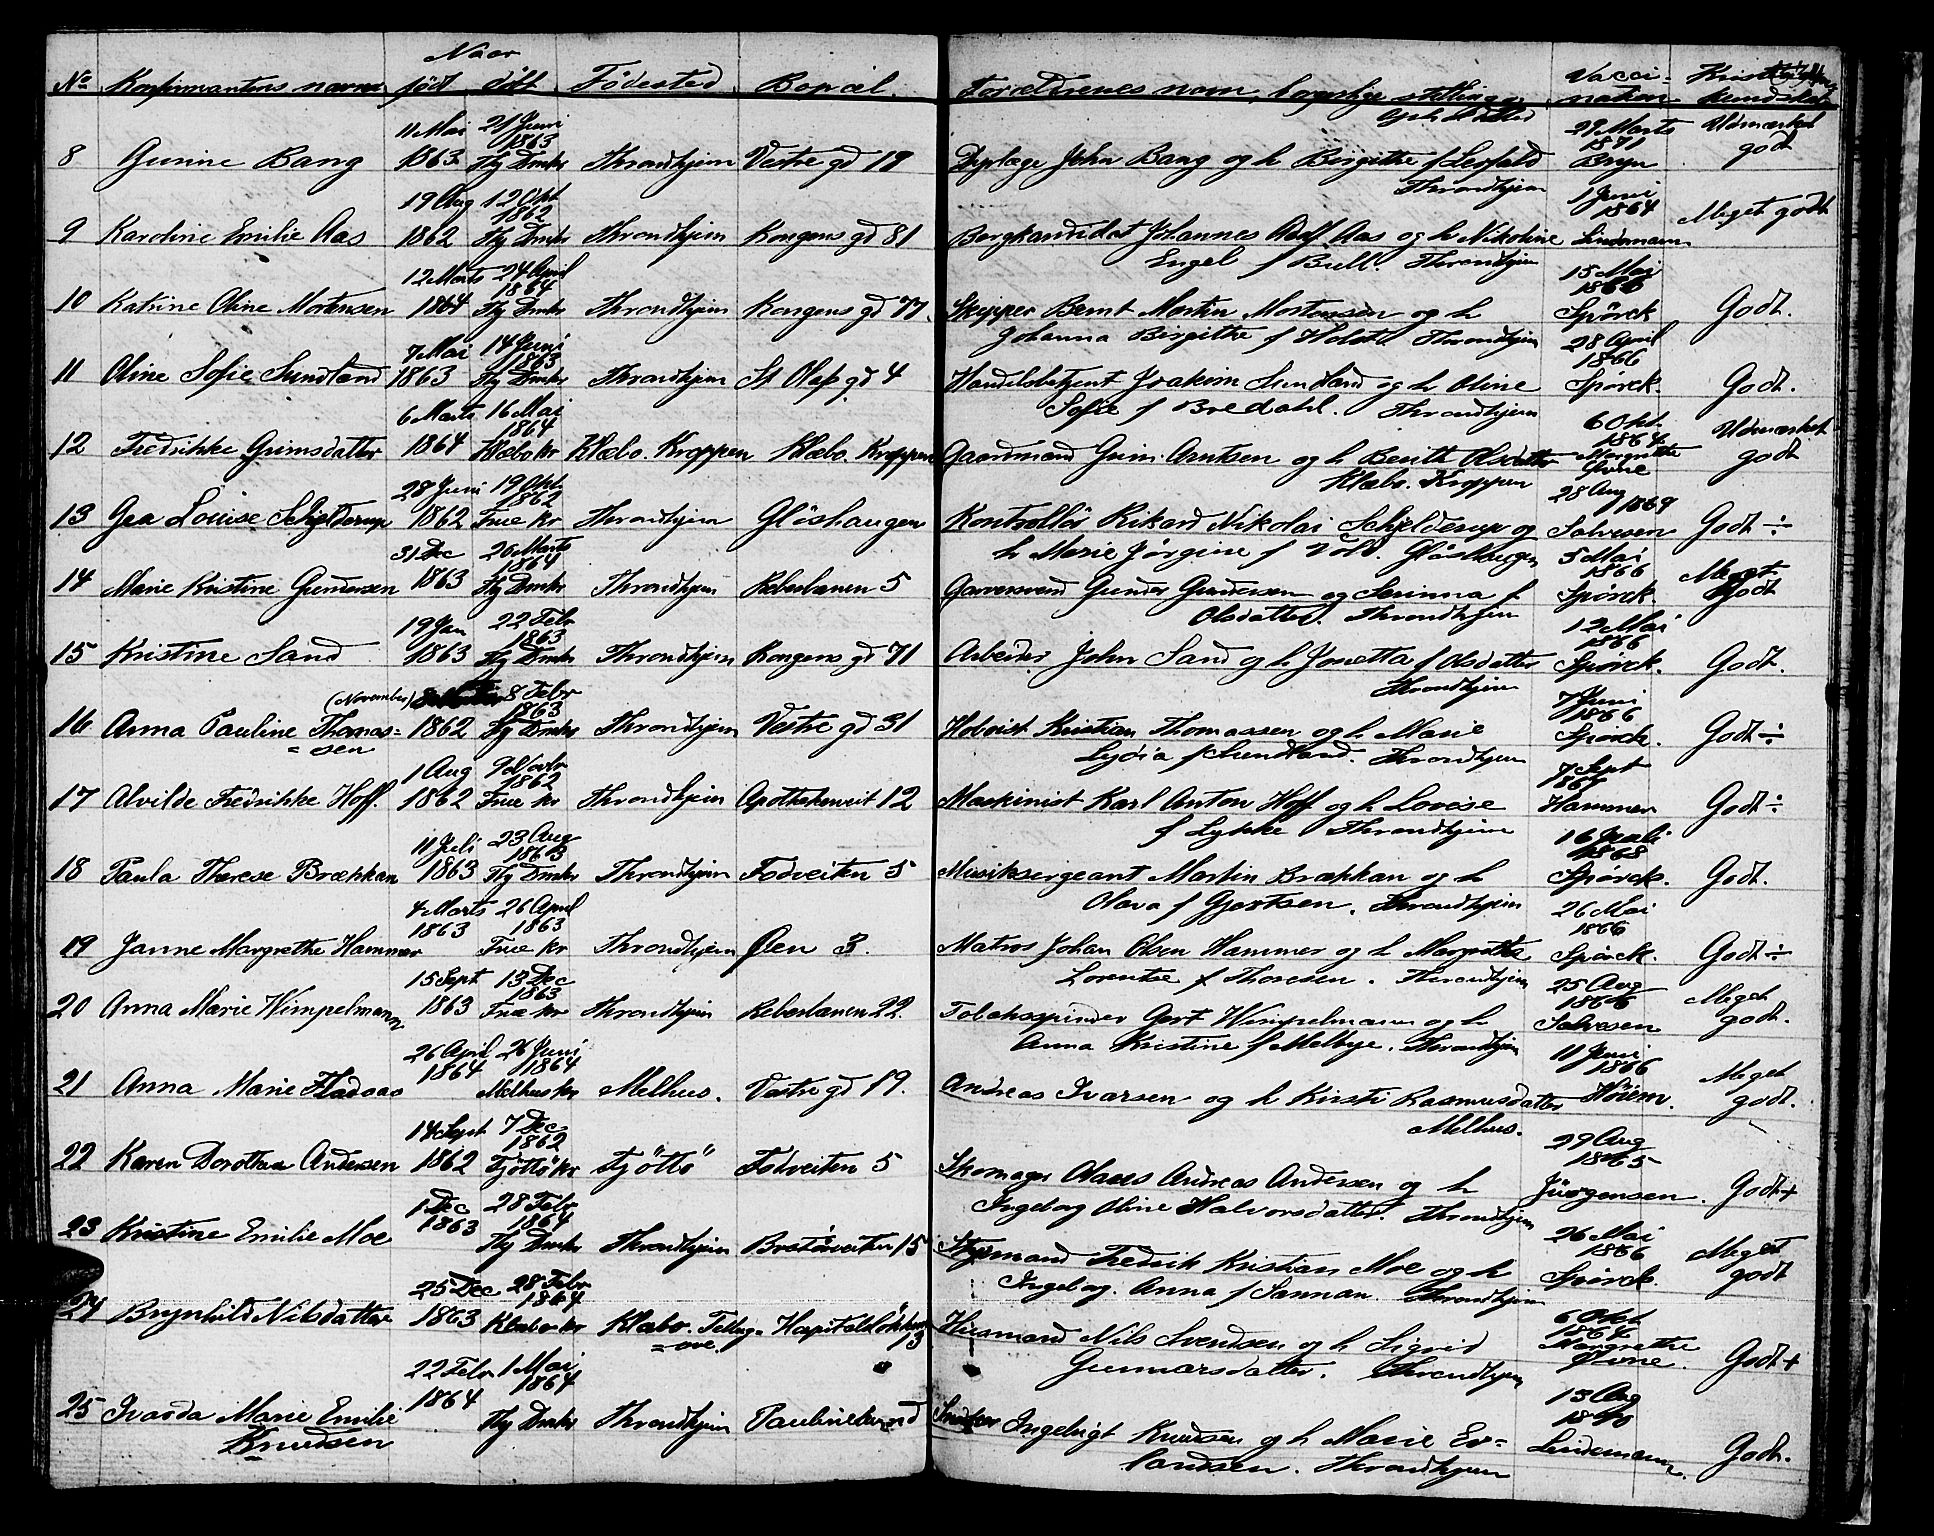 Naar
No Konfirmantens navn født døbt Fødested Bopæl. Forældrenes navn, borgerlige stilling Vacci- Kristendoms-
og h. nation kundskab
11 Mai 21 Juni 29 Marts Udmærket
1863 1871
8 Gurine Bang 1863 Hg Dmkr Throndhjem Vestre gd 19 John Bang og h Birgithe f Leifald Bryn godt
Throndhjem
19 Aug 12 Okt 1 Juni
1862 1864 Meget godt
9 Karoline Emilie Aas 1862 Hg Dmkr Throndhjem Kongens gd 81 Bergkandidat Johannes Adolf Aas og h Nikoline Lindemann
Engel f Bull. Throndhjem
12 Marts 24 April 15 Mai
1864 1866
10 Katrine Oline Mortensen 1864 Hg Dmkr Throndhjem Kongens gd 77. Skipper Bernt Martin Mortensen og h Spørck Godt.
Johanna Birgithe f Holst. Throndhjem
7 Mai 14 Juni 28 April
1863 1866
11 Oline Sofie Sundland 1863 Hg Dmkr Throndhjem St Olafs gd 4 Handelsbetjent Joakim Sundland og h Oline Spørck. Godt.
Sofie f Bredahl. Throndhjem
6 Marts 16 Mai 6 Okt
1864 1864 Udmærket
12 Fredrikke Grimsdatter 1864 Klæbo kr Klæbo. Kroppen Klæbo. Kroppen Gaardmand Grim Arntsen og h Beritt Olsdatter Margrethe godt
Klæbo. Kroppen
28 Juni 19 Okt 28 Aug
1862 1869
13 Gea Louise Schjelderup 1862 Frue kr Throndhjem Gløshaugen Kontrollør Rikard Nikolai Schjelderup og Salvesen Godt ÷
h Marie Jørgine f Vold.
31 Dec 26 Marts 5 Mai
1864 1866 Meget
14 Marie Kristine Gundersen 1863 Hg Dmkr Throndhjem Reberbanen 5 Garversvend Gunder Gundersen og Serinna f Spørck. Godt
Olsdatter. Throndhjem
19 Jan 22 Febr 12 Mai
1863 1866
15 Kristine Sand 1863 Hg Dmkr Throndhjem Kongens gd 71 Arbeider John Sand og h Jonetta f Olsdatter Spørck. Godt.
Throndhjem
(November) 8 Febr 7 Juni
1863 1866
16 Anna Pauline Thomas= 1862 Hg Dmkr Throndhjem Vestre gd 31 Kristian Thomassen og h Marie Spørck. Godt ÷
=sen Lydia f Sundland. Throndhjem
1 Aug 9 Novbr 7 Sept
1862
17 Alvilde Fredrikke Hoff. 1862 Frue kr Throndhjem Apothekerveit 12 Maskinist Karl Anton Hoff og h Lovise Hammer Godt ÷
f Lykke Throndhjem
11 Juli 23 Aug 16 Juli
1863 1868
18 Paula Therese Brækkan 1863 Hg Dmkr Throndhjem Fodveiten 5 Musiksergeant Martin Brækkan og h Spørck. Godt.
Olava f Gjertsen. Throndhjem
4 Marts 26 April 26 Mai
1863 1863 1866
19 Janne Margrethe Hammer Frue kr Throndhjem Øen 3. Matros Johan Olsen Hammer og h Margrethe Spørck. Godt ÷
Lorentse f Thoresen. Throndhjem
15 Sept 13 Dec 25 Aug
1863 1866 Meget
20 Anna Marie Wimpelmann 1863 Frue kr Throndhjem Reberbanen 22. Tobakspinder Gert Wimpelmann og h Salvesen godt.
Anna Kristine f Melbye. Throndhjem
26 April 26 Juni 11 Juni
1864 1864 1866 Meget
21 Anna Marie Fladaas Melhus kr Melhus. Vestre gd 19. Andreas Ivarsen og h Kirsti Rasmusdatter Høiem. godt.
Melhus.
14 Sept 7 Dec 29 Aug
1862 1865
22 Karen Dorothea Andersen 1862 Tjöttö kr Tjöttö Fodveiten 5 Skomager Claus Andreas Andersen og h Jürgensen. Godt +
Ingeborg Oline Halvorsdatter. Throndhjem
1 Dec 28 Febr 26 Mai
1863 1864 1866 Meget
23 Kristine Emilie Moe Hg Dmkr Throndhjem Bratörveiten 15 Styrmand Fredrik Kristian Moe og h Spørck. godt
Ingeborg Anna f Sannan. Throndhjem
25 Dec 28 Febr 6 Okt
1864 1864
24 Brynhild Nilsdatter 1863 Klæbo kr Klæbo. 13 Husmand Nils Svendsen og h Sigrid Margrethe Godt +
Gunnarsdatter. Throndhjem
22 Febr 1 Mai 13 Aug
1864 1864
25 Ivarda Marie Emilie Hg Dmkr Throndhjem Paulinelund Snedker Ingebrigt Knudsen og h Marie Ev= Lindemann. Godt.
Knudsen Throndhjem